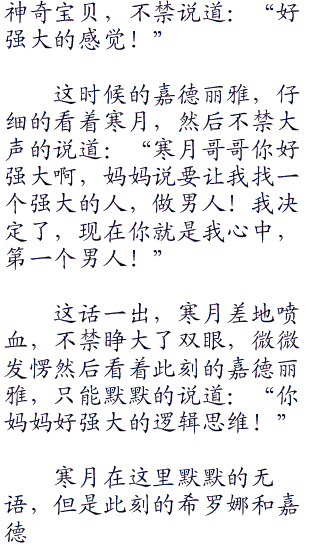 神奇宝贝，不禁说道：“好
强大的感觉！”
这时候的嘉德丽雅，仔
细的看着寒月，然后不禁大
声的说道：“寒月哥哥你好
强大啊，妈妈说要让我找一
个强大的人，做男人！我决
定了，现在你就是我心中，
第一个男人！”
这话一出，寒月差地喷
血，不禁睁大了双眼，微微
发愣然后看着此刻的嘉德丽
雅，只能默默的说道：“你
妈妈好强大的逻辑思维！”
寒月在这里默默的无
语，但是此刻的希罗娜和嘉
德